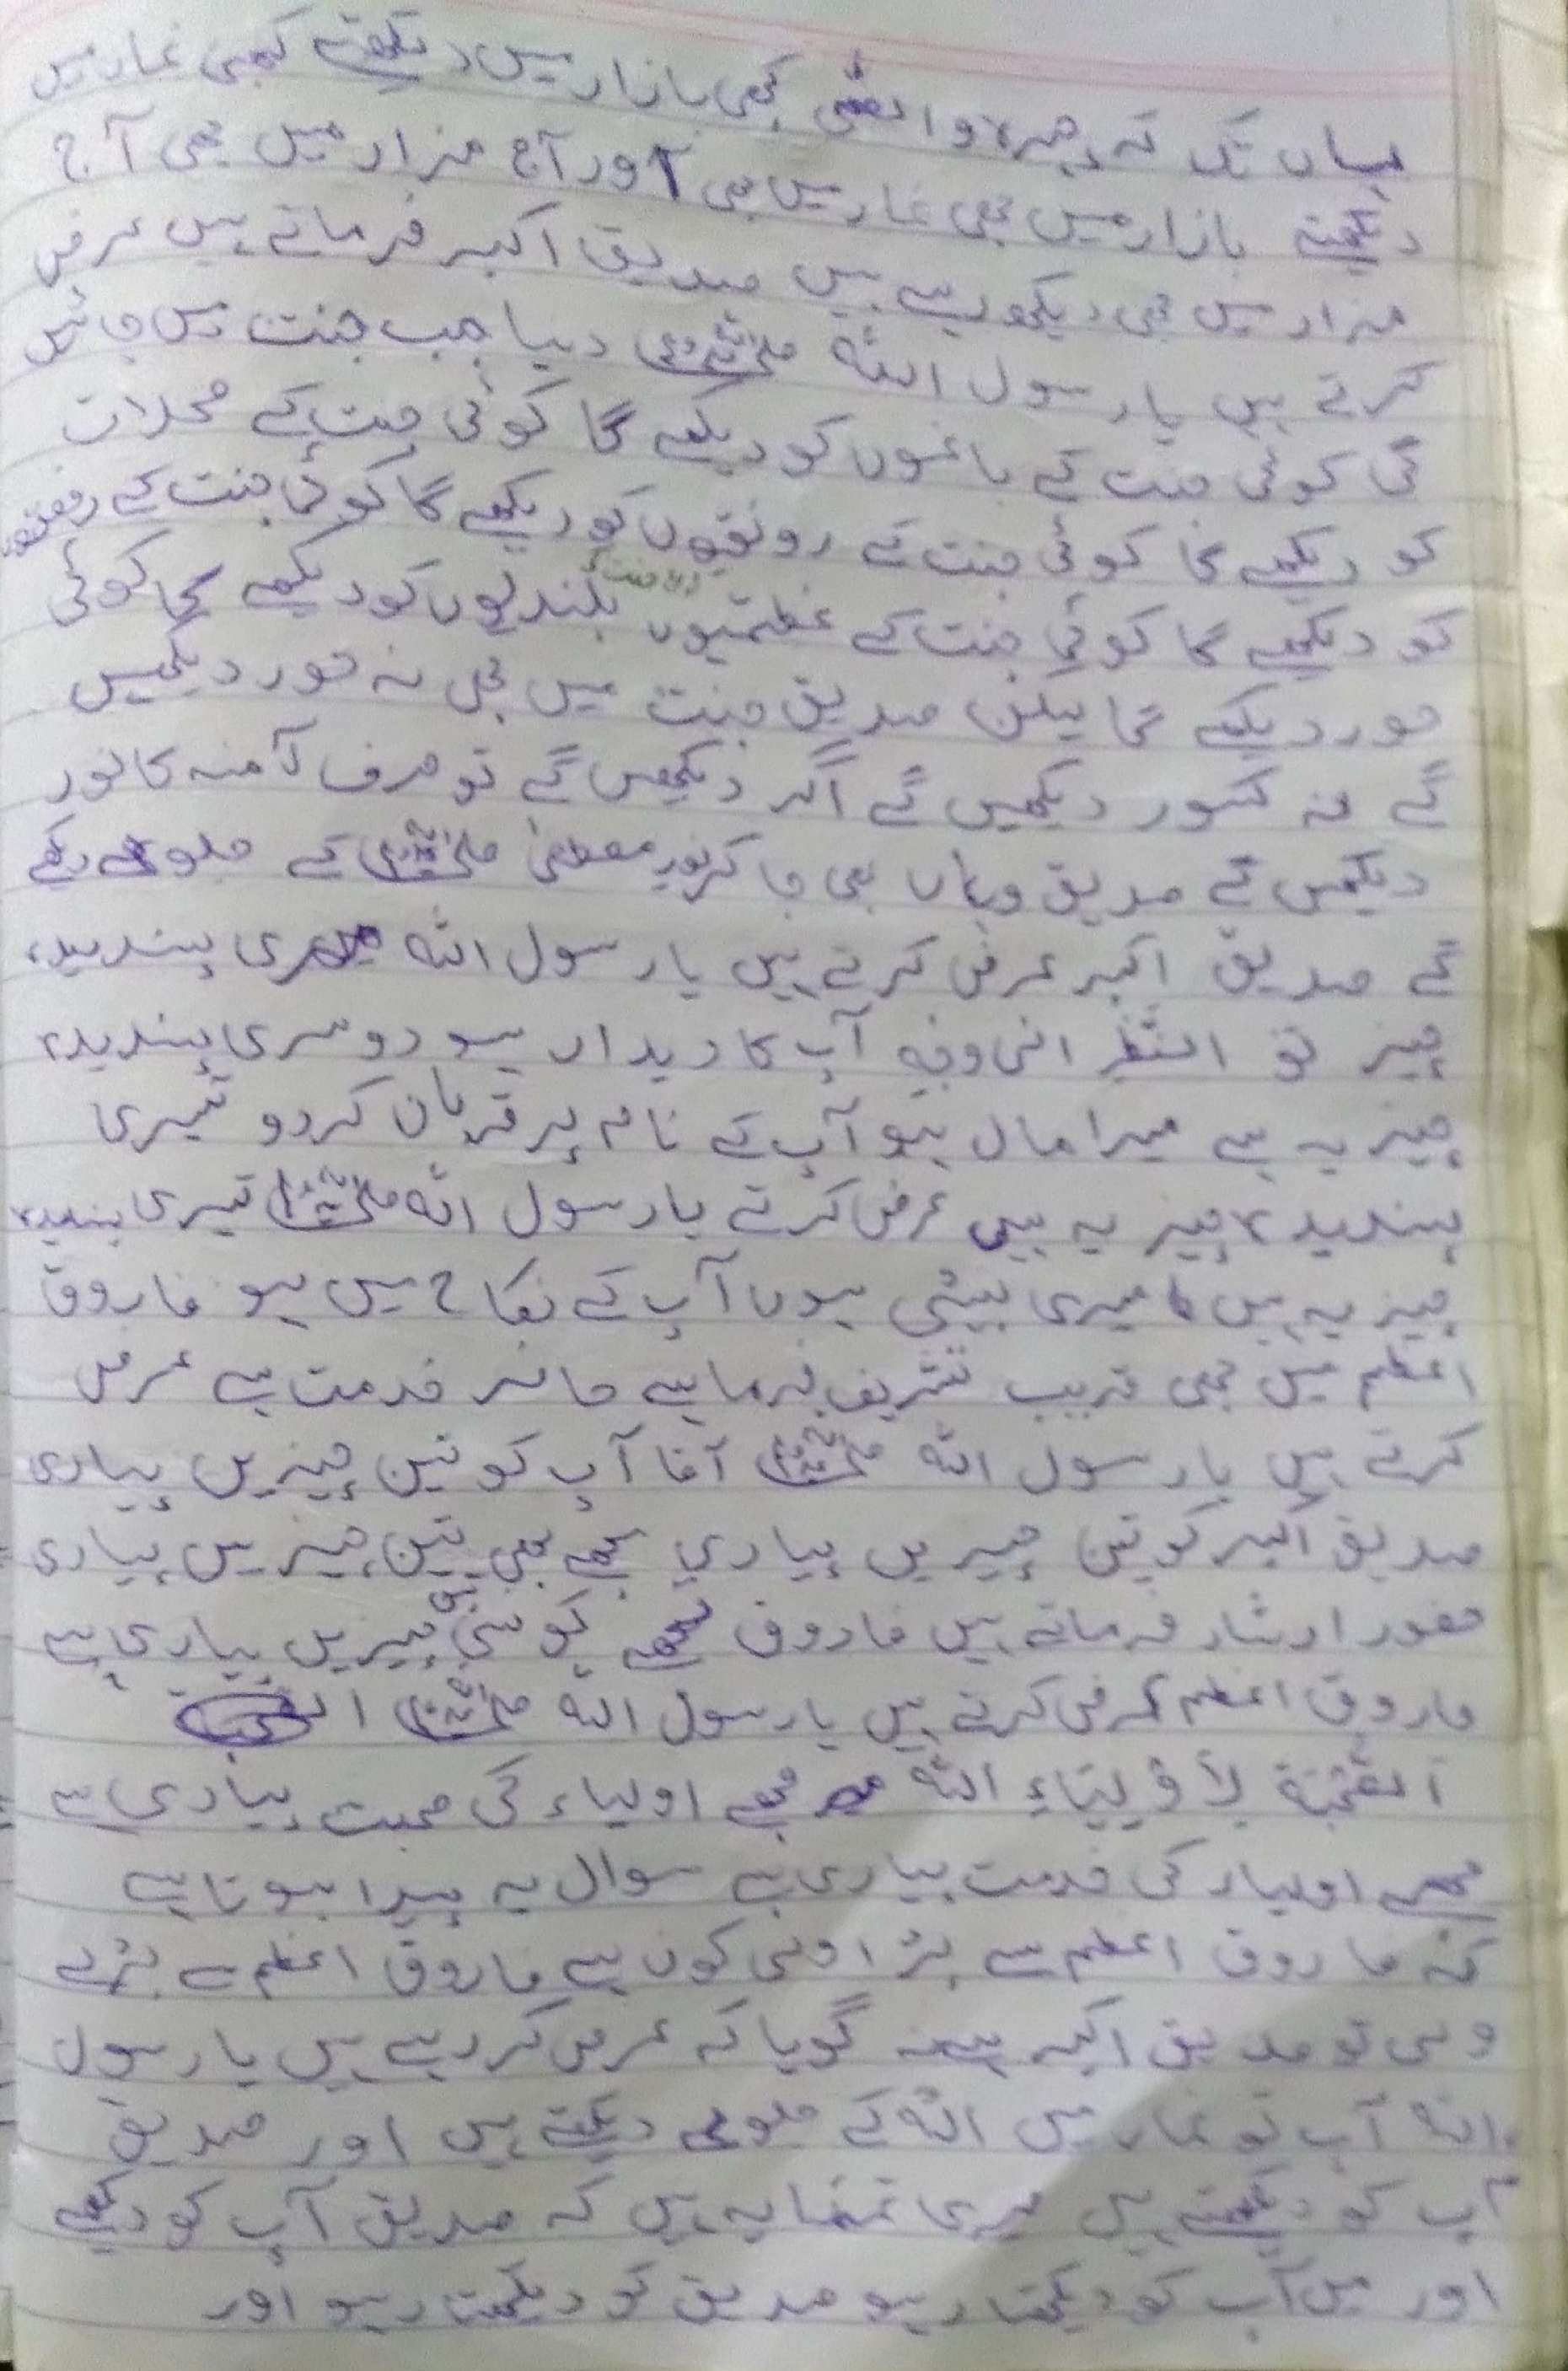 یہاں تک کہ چہرہ والضحٰی کبھی بازار میں دیکھتے کبھی غار میں
دیکھتے بازار میں بھی غار میں بھی اور آج مزار میں بھی آج
مزار میں بھی دیکھ رہے ہیں صدیق اکبر فرماتے ہیں عرض
کرتے ہیں یارسول اللہ صلی اللہ علیہ وسلم دنیا جب جنت میں جائیں
گی کوئی جنت کے باغوں کو دیکھے گا کوئی جنت کے محلات
کو دیکھے گا کوئی جنت کے رونقوں کو دیکھے گا کوئی جنت کے رفعتوں
کو دیکھے گا کوئی جنت کے عظمتیوں بلندیوں کو دیکھے گا کوئی
حور دیکھے گا لیکن صدیق جنت میں بھی نہ حور دیکھیں
گے نہ کسور دیکھیں گے اگر دیکھیں گے تو صرف آمنہ کا نور
دیکھیں گے صدیق وہاں بھی جا کر نورِ مصطفیٰ صلی اللہ علیہ وسلم کے جلوے دیکھے
گے صدیق اکبر عرض کرتے ہیں یارسول اللہ میری پسندیدہ
چیز تو النظر الی وجہ آپ کا دیدار ہو دوسری پسندیدہ
چیز یہ ہے میرا مال ہو آپ کے نام پر قربان کردو تیسری
پسندیدہ چیز یہ ہیں عرض کرتے یارسول اللہ صلی اللہ علیہ وسلم تیسری پسندیدہ
چیز یہ ہیں کا میری بیٹی ہوں آپ کے نکاح میں ہو فاروق
اعظم میں بھی قریب تشریف فرما ہے حاضر خدمت ہے عرض
کرتے ہیں یارسول اللہ صلی اللہ علیہ وسلم آقا آپ کو تین چیزیں پیاری
صدیق اکبر کو تین چیزیں پیاری مجھے بھی تین چیزیں پیاری
حضور ارشاد فرماتے ہیں فاروق تجھے کونسی چیزیں پیاری ہے
فاروق اعظم عرض کرتے ہیں یارسول اللہ صلی اللہ علیہ وسلم
الصُحْبَۃ لِأَوْلِیَاءِ اللہ مجھے اولیاء کی صحبت پیاری ہے
مجھے اولیاء کی خدمت پیاری ہے سوال یہ پیدا ہوتا ہے
کہ فاروق اعظم سے بڑا ولی کون ہے فاروق اعظم سے بڑے
ولی تو صدیق اکبر ہے گویا کہ عرض کر رہے ہیں یارسول
اللہ آپ تو غار میں اللہ کے جلوے دیکھتے ہیں اور صدیق
آپ کو دیکھتے ہیں میری تمنا یہ ہیں کہ صدیق آپ کو دیکھے
اور میں آپ کو دیکھتا رہو صدیق کو دیکھتا رہو اور